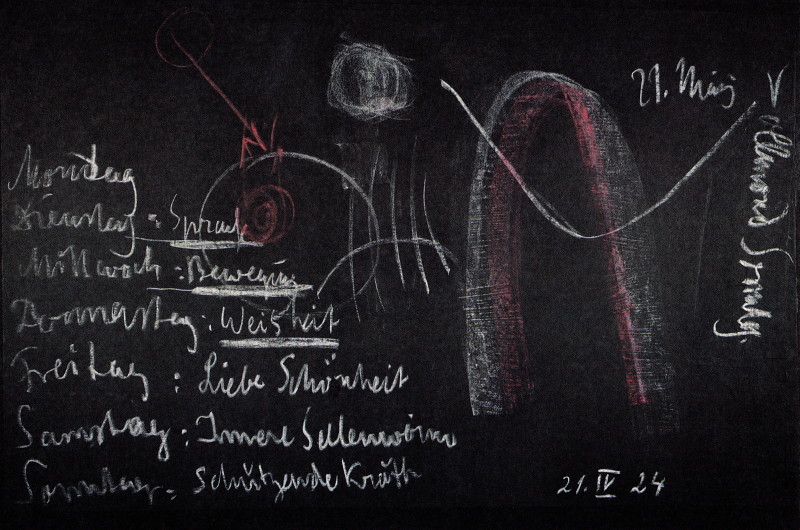 21. März
Vollmond Sonntag.
Montag
Dienstag = Sprach
Mittwoch = Bewegung
Donnerstag: Weisheit
Freitag: Liebe Schönheit
Samstag: Innere Seelenwärme
Sonntag = Schützende Kräfte
21. IV 24